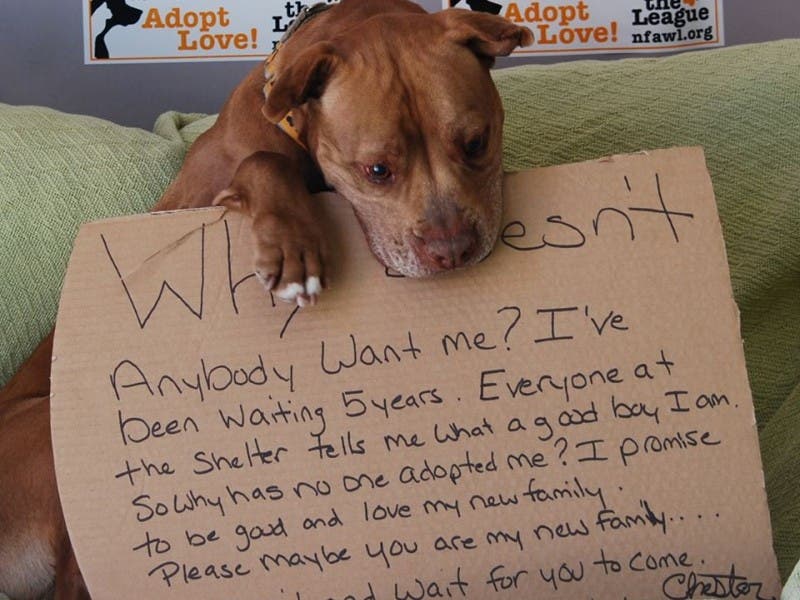 Adopt the
Love! L
Adopt the
Love! League
nfawl.org
Why esn't
Anybody Want me? I've
been waiting 5 years. Everyone at
the Shelter tells me what a good boy I am.
So why has no one adopted me? I promise
to be good and love my new family.
Please maybe you are my new family....
and wait for you to come.
Chester